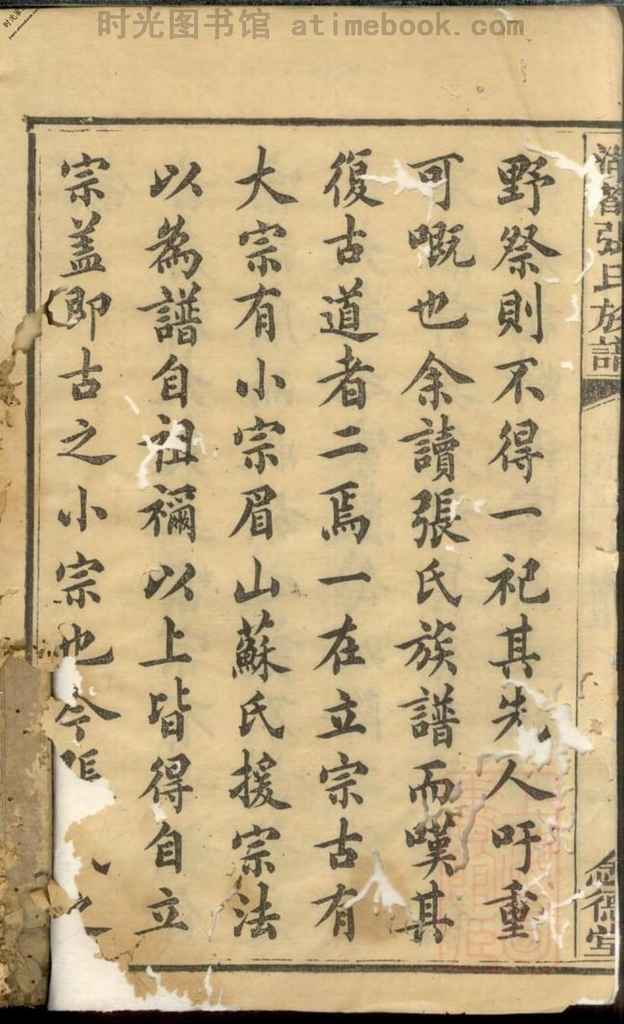 时光图书馆 atimebook.com
張氏族譜
野祭則不得一祀其先人吁重
可嘅也余讀張氏族譜而嘆其
復古道者二焉一在立宗古有
大宗有小宗眉山蘇氏援宗法
以為譜自祖禰以上皆得自立
宗盖即古之小宗也今
之
德堂